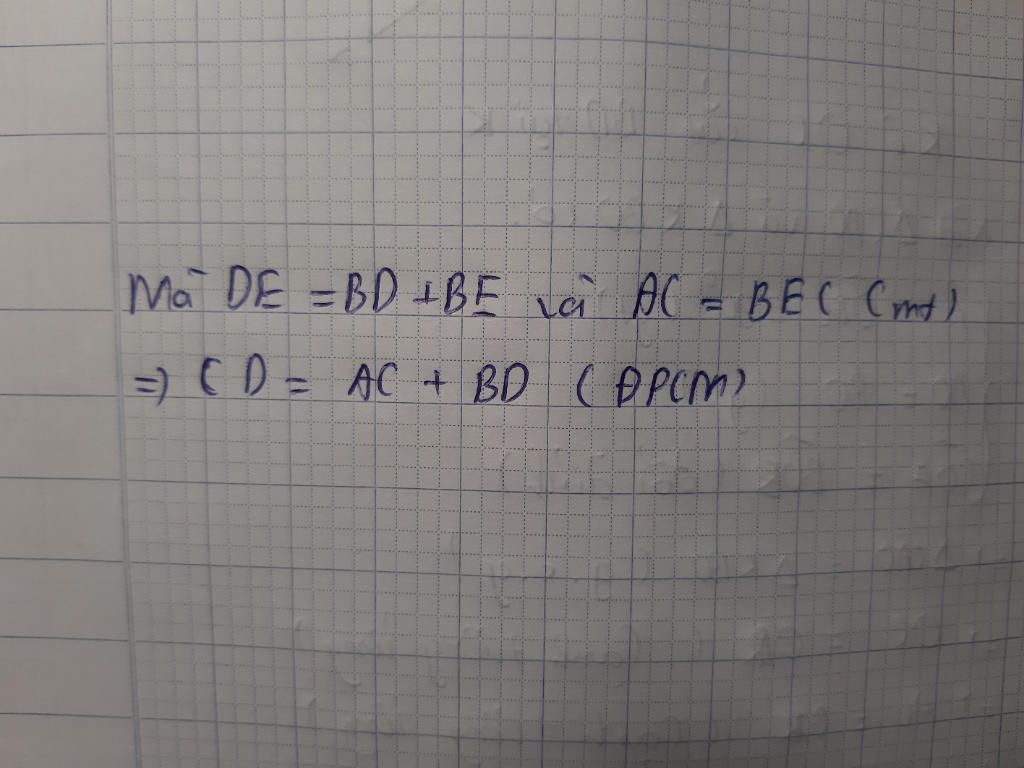 Mà DE = BD + BE và AC = BE ( (mt)
=) CD = AC + BD (ĐPCM)